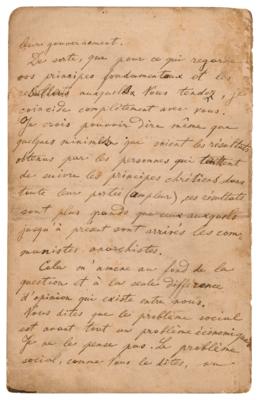 leurs gouvernement.
De sorte, que pour ce qui regarde
vos principes fondamentaux et les
résultats auxquels Vous tendez, je
coïncide complètement avec vous.
Je crois pouvoir dire même que
quelques minimes que soient les résultats
obtenus par les personnes qui tentent
de suivre les principes chrétiens dans
toute leur portée (ampleur) ces resultats
sont plus grands que ceux auxquels
jusqu'à présent sont arrivés les com
munistes anarchistes.
Cela m'amène au fond de la
question et à la seule différence
d'opinion qui existe entre nous.
Vous dites que le problème social
est avant tout un problème économique
Je ne les pense pas. Le problème
social, comme Vous le dites, un